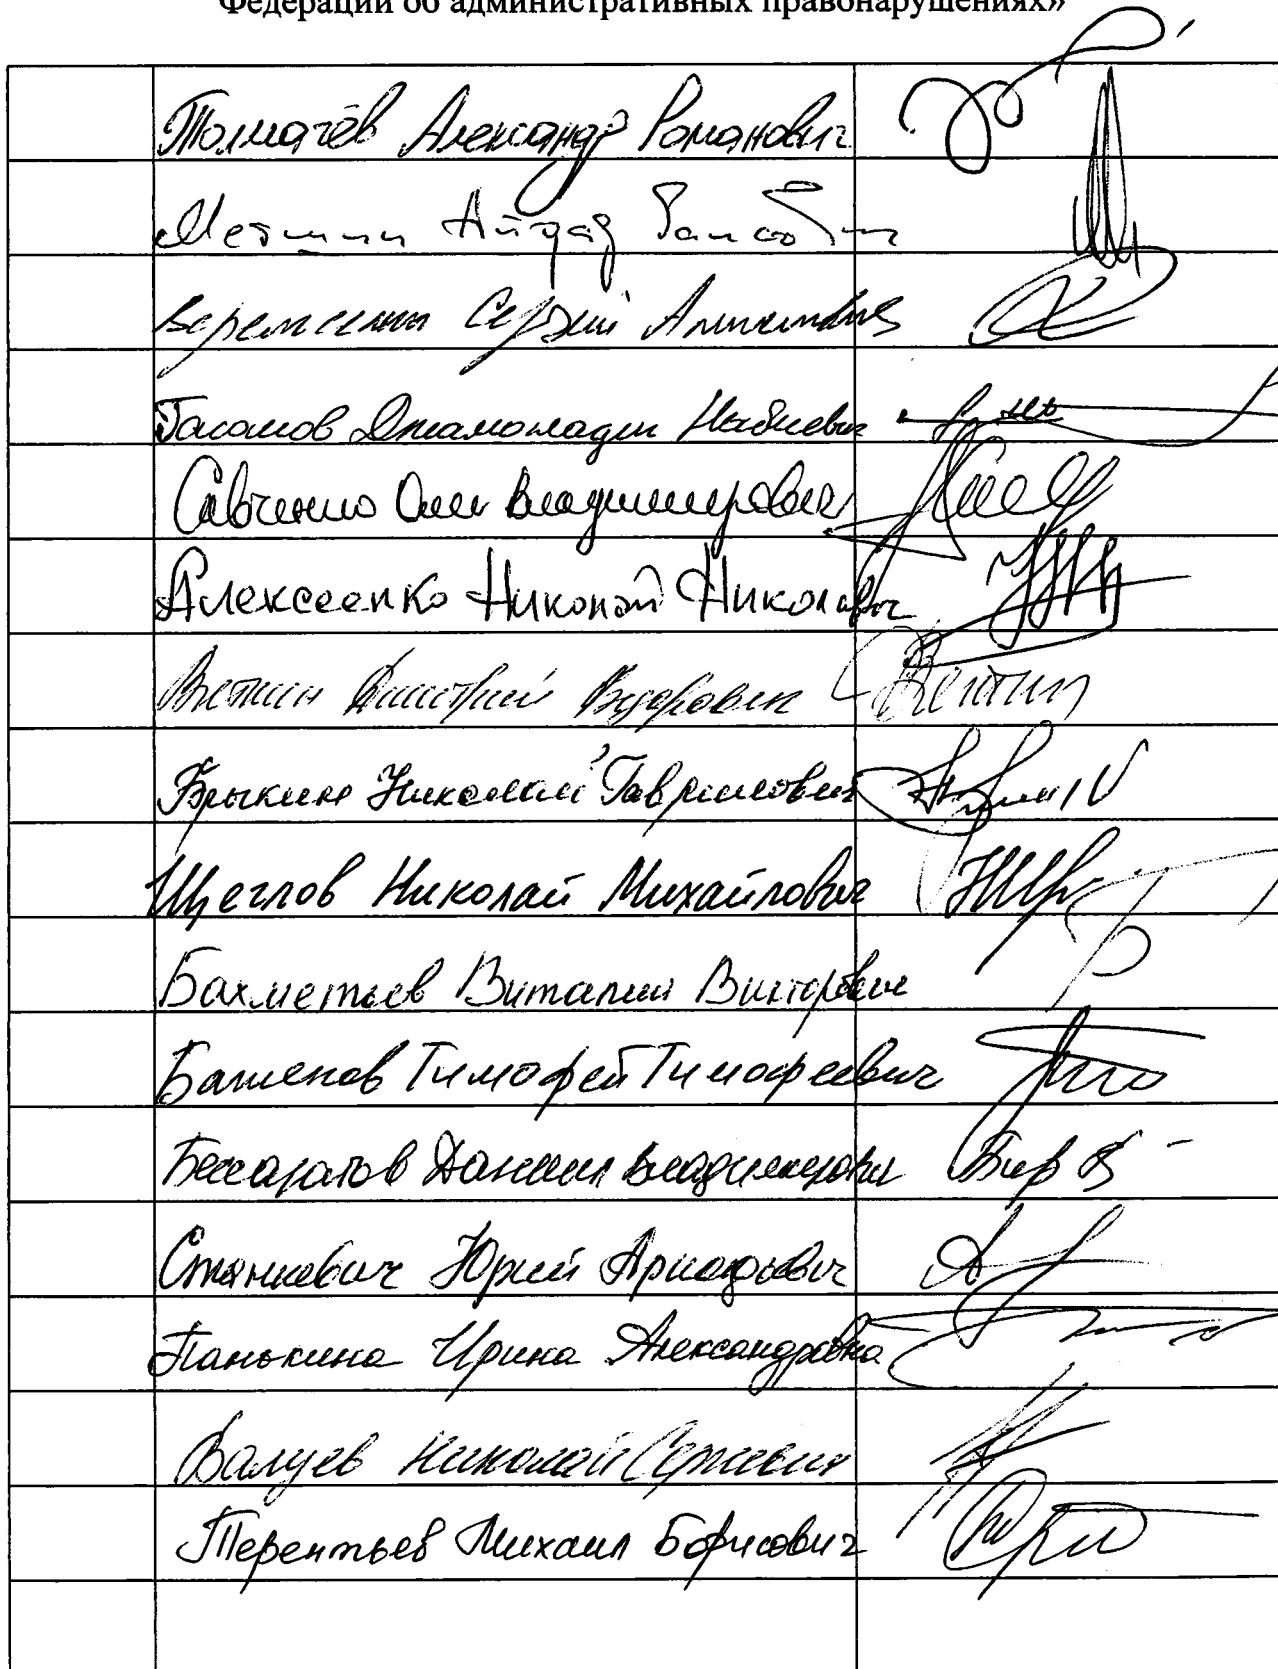 Федерации об административных правонарушениях»
Толмачёв Александр Романович
Метшин Айдар Раисович
Веремеенко Сергей Алексеевич
Гасанов Джамаладин Набиевич
Савченко Олег Владимирович
Алексеенко Николай Николаевич
Вяткин Дмитрий Федорович
Брыкин Николай Гаврилович
Щеглов Николай Михайлович
Бахметьев Виталий Викторович
Баженов Тимофей Тимофеевич
Бессарабов Даниил Владимирович
Станкевич Юрий Аркадьевич
Панькина Ирина Александровна
Валуев Николай Сергеевич
Терентьев Михаил Борисович